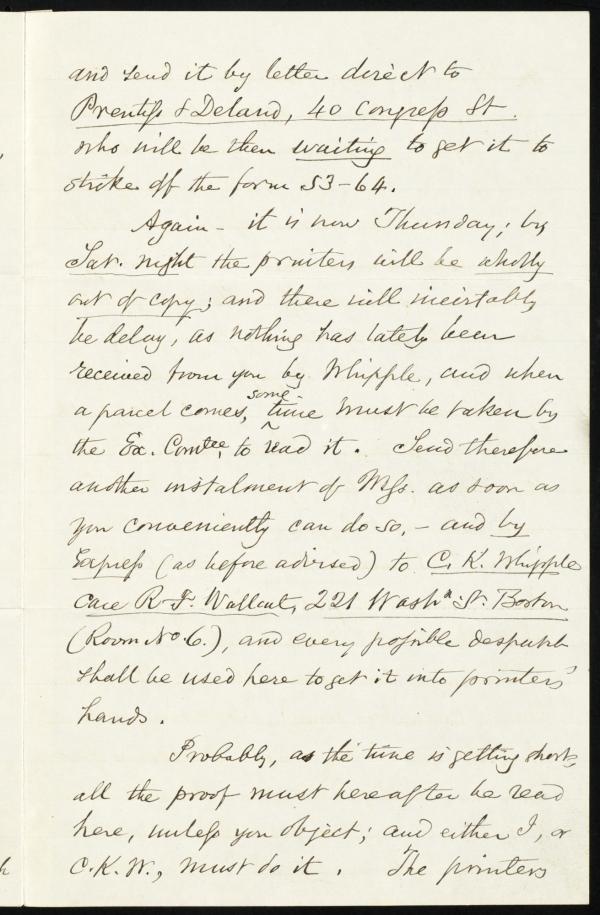 and send it by letter direct to
Prentiss & Deland, 40 Congress St.
who will be then waiting to get it to
strike off the form 53-64.
Again - it is now Thursday; by
Sat. night the printers will be wholly
out of copy; and there will inevitably
be delay, as nothing has lately been
received from you by Whipple, and when
a parcel comes, some time must be taken by
the Ex. Comtee, to read it. Send therefore
another instalment of Mss. as soon as
you conveniently can do so, - and by
Express (as before advised) to C. K. Whipple
care R. F. Wallcut, 221 Washn. St. Boston
(Room No. 6.), and every possible despatch
shall be used here to get it into printers'
hands.
Probably, as the time is getting short,
all the proof must hereafter be read
here, unless you object; and either I, or
C.K.W., must do it. The printers